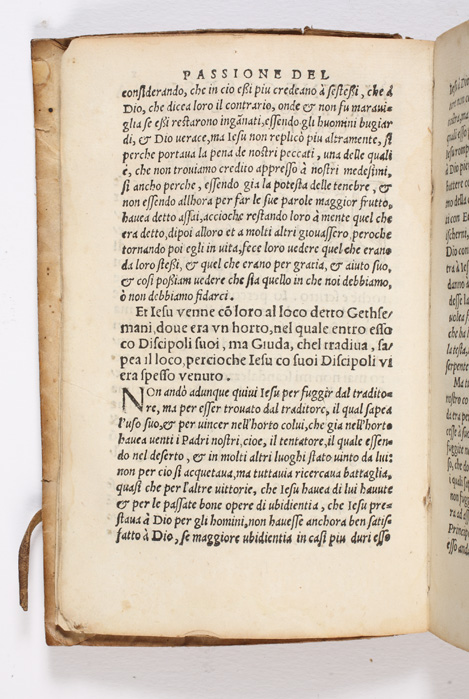 PASSIONE DEL
considerando, che in cio eßi piu credeano à sesteßi, che à
Dio, che dicea loro il contrario, onde & non fu maraui-
glia se eßi restarono ingãnati, essendo gli huomini bugiar
di, & Dio verace, ma Iesu non replicò piu altramente, si
perche portaua la pena de nostri peccati, una delle quali
è, che non trouiamo credito appresso à nostri medesimi,
si ancho perche, essendo gia la potesta delle tenebre, &
non essendo allhora per far le sue parole maggior frutto,
hauea detto assai, accioche restando loro à mente quel che
era detto, dipoi alloro et a molti altri giouassero, peroche
tornando poi egli in vita, fece loro uedere quel che erano
da loro steßi, & quel che erano per gratia, & aiuto suo,
& cosi poßiam uedere che sia quello in che noi debbiamo,
ò non debbiamo fidarci.
Et Iesu venne cõ loro al loco detto Gethse-
mani, doue era vn horto, nel quale entro esso
co Discipoli suoi, ma Giuda, chel tradiua, sa-
pea il loco, percioche Iesu co suoi Discipoli vi
era spesso venuto.
NOn andò adunque quiui Iesu per fuggir dal tradito-
re, ma per esser trouato dal traditore, il qual sapea
l'uso suo, & per uincer nell'horto colui, che gia nell'horto
hauea uenti i Padri nostri, cioe, il tentatore, il quale essen-
do nel deserto, & in molti altri luoghi stato uinto da lui:
non per cio si acquetaua, ma tuttauia ricercaua battaglia,
quasi che per l'altre vittorie, che Iesu hauea di lui hauute
& per le passate bone opere di ubidientia, che Iesu pre-
staua à Dio per gli homini, non hauesse anchora ben satis-
fatto à Dio, se maggiore ubidientia in casi piu duri esso